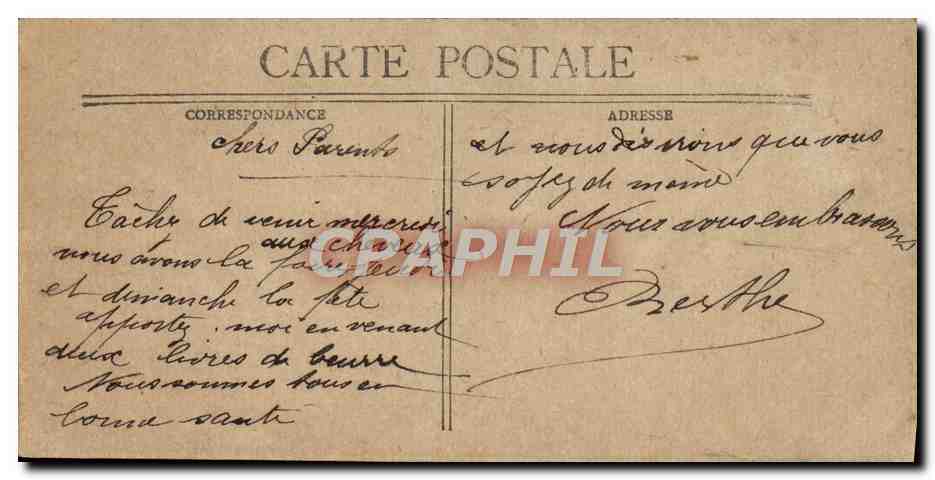 CARTE POSTALE
CORRESPONDANCE
chers Parents
Tâche de venir mercredi
aux chevaux
nous avons la foire
et dimanche la fête
apportez-moi en venant
deux livres de beurre
Nous sommes tous en
bonne santé
ADRESSE
et nous désirons que vous
soyez de même
Nous vous embrassons
Berthe
CPAPHIL